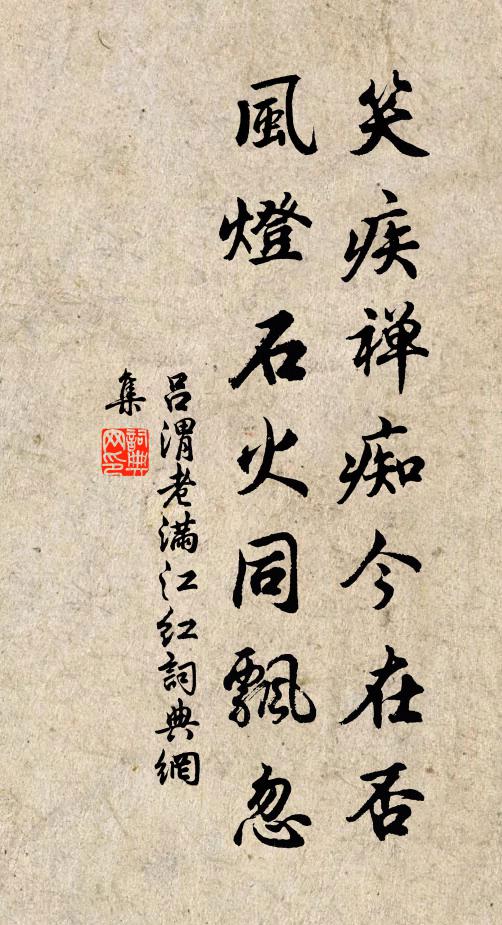 笑疾禅痴今在否
風燈石火同飄忽
吕渭老满江红詞典網
集
詞典网印